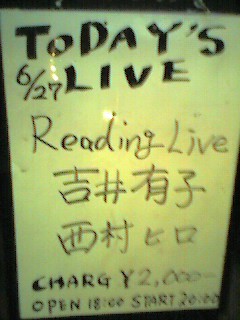 TODAY'S
6/27 LIVE
Reading Live
吉井有子
西村ヒロ
CHARG ¥2,000-
OPEN 18:00 START 20:00